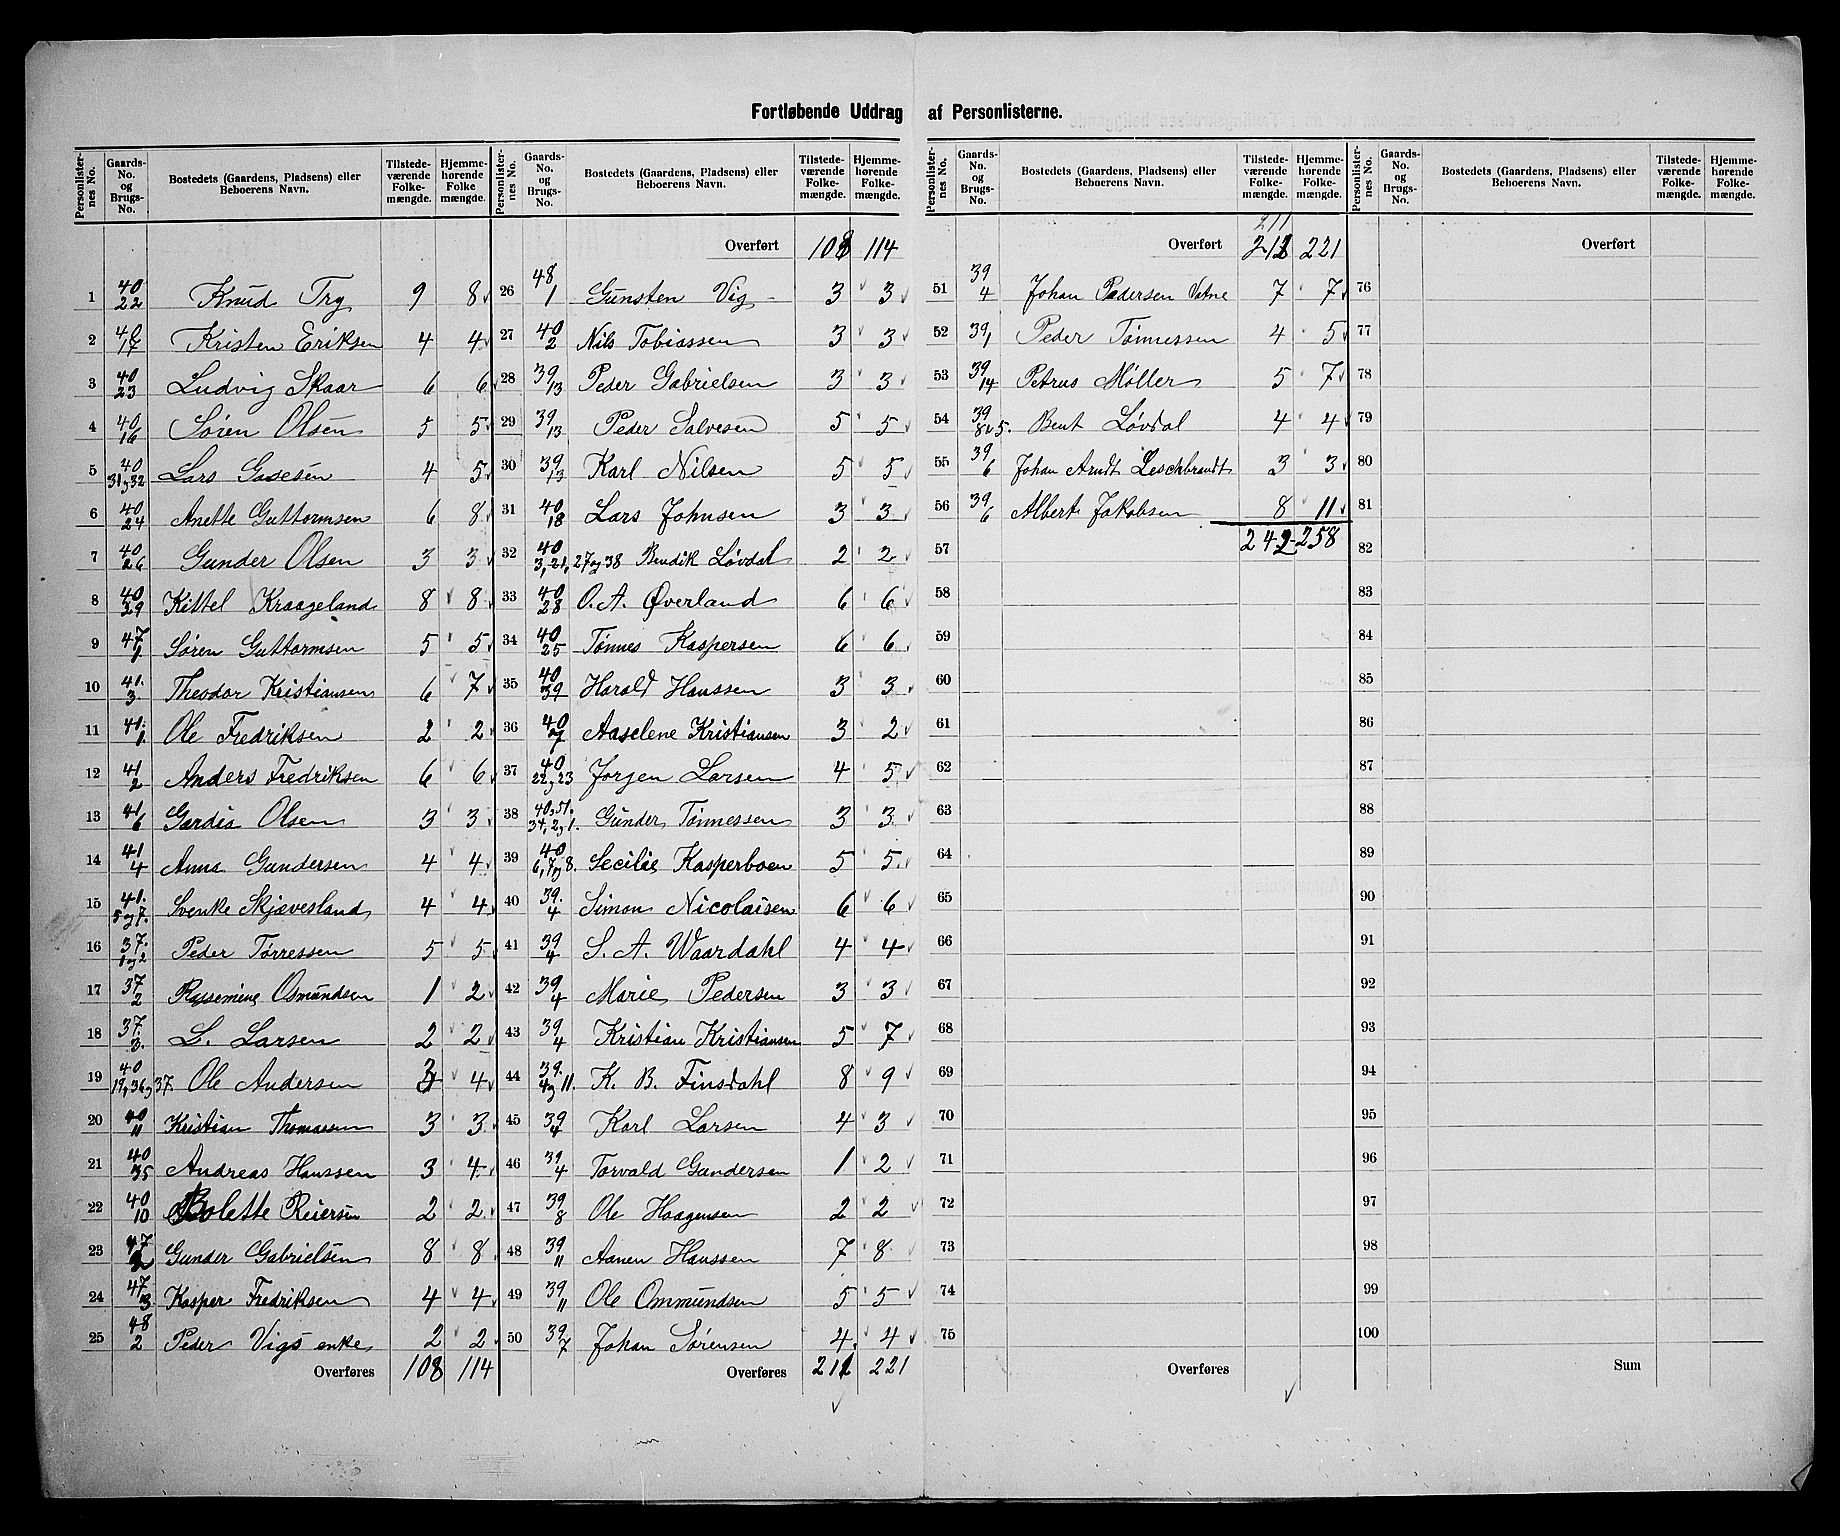 Fortløbende Uddrag af Personlisterne.
Personlister-nes No. | Gaards-No. og Brugs-No. | Bostedets (Gaardens, Pladsens) eller Beboerens Navn. | Tilstede-værende Folke-mængde. | Hjemme-hørende Folke mængde.
1 40/22 Knud Try 9 8
2 40/17 Kristen Eriksen 4 4
3 40/23 Ludvig Skaar 6 6
4 40/16 Søren Olsen 5 5
5 40/31og32 Lars Gasesen 4 5
6 40/24 Anette Guttormsen 6 8
7 40/26 Gunder Olsen 3 3
8 40/29 Kittel Kraageland 8 8
9 47/1 Søren Guttormsen 5 5
10 41/3 Theodor Kristiansen 6 7
11 41/1 Ole Fredriksen 2 2
12 41/2 Anders Fredriksen 6 6
13 41/6 Gardia Olsen 3 3
14 41/4 Anna Gundersen 4 4
15 41/5og7 Svenke Skjævesland 4 4
16 37/1og2 Peder Tørressen 5 5
17 37/2 Rassemine Osmundsen 1 2
18 37/3 L. Larsen 2 2
19 40/19,36og37 Ole Andersen 3 4
20 40/11 Kristian Thomassen 3 3
21 40/35 Andreas Hanssen 3 4
22 40/10 Bolette Reiersen 2 2
23 47/2 Gunder Gabrielsen 8 8
24 47/3 Kasper Fredriksen 4 4
25 48/2 Peder Vigs enke 2 2
Overføres 108 114
Personlister-nes No. | Gaards-No. og Brugs-No. | Bostedets (Gaardens, Pladsens) eller Beboerens Navn. | Tilstede-værende Folke-mængde. | Hjemme-hørende Folke-mængde.
Overført 108 114
26 48/1 Gunsten Vig 3 3
27 40/2 Nils Tobiassen 3 3
28 39/13 Peder Gabrielsen 3 3
29 39/13 Peder Salvesen 5 5
30 39/13 Karl Nilsen 5 5
31 40/18 Lars Johnsen 3 3
32 40/3,21,27og38 Bendik Løvdal 2 2
33 40/28 O. A. Øverland 6 6
34 40/25 Tønnes Kaspersen 6 6
35 40/39 Harald Hanssen 3 3
36 40/7 Aaselene Kristiansen 3 2
37 40/22og23 Jørgen Larsen 4 5
38 40og51./34,2og1. Gunder Tønnessen 3 3
39 40/6,7og8. Secilie Kasperboen 5 5
40 39/4 Simon Nicolaisen 6 6
41 39/4 S. A. Waardahl 4 4
42 39/4 Marie Pedersen 3 3
43 39/4 Kristian Kristiansen 5 7
44 39/4og11. K. B. Finsdahl 8 9
45 39/4 Karl Larsen 4 3
46 39/4 Torvald Gundersen 1 2
47 39/8 Ole Haagensen 2 2
48 39/11 Aanen Hanssen 7 8
49 39/11 Ole Ommundsen 5 5
50 39/7 Johan Sørensen 4 4
Overføres 211 221
Personlister-nes No. | Gaards-No. og Brugs-No. | Bostedets (Gaardens, Pladsens) eller Beboerens Navn. | Tilstede-værende Folke-mængde. | Hjemme-hørende Folke-mængde.
211
Overført 212 221
51 39/4 Johan Pedersen Vatne 7 7
52 39/1 Peder Tønnessen 4 5
53 39/14 Petrus Møller 5 7
54 39/8og5. Bent Løvdal 4 4
55 39/6 Johan Arndt Leschbrandt 3 3
56 39/6 Albert Jakobsen 8 11
57 242 258
58
59
60
61
62
63
64
65
66
67
68
69
70
71
72
73
74
75
Overføres
Personlister-nes No. | Gaards-No. og Brugs-No. | Bostedets (Gaardens, Pladsens) eller Beboerens Navn. | Tilstede-værende Folke-mængde. | Hjemme-hørende Folke-mængde.
Overført
76
77
78
79
80
81
82
83
84
85
86
87
88
89
90
91
92
93
94
95
96
97
98
99
100
Sum